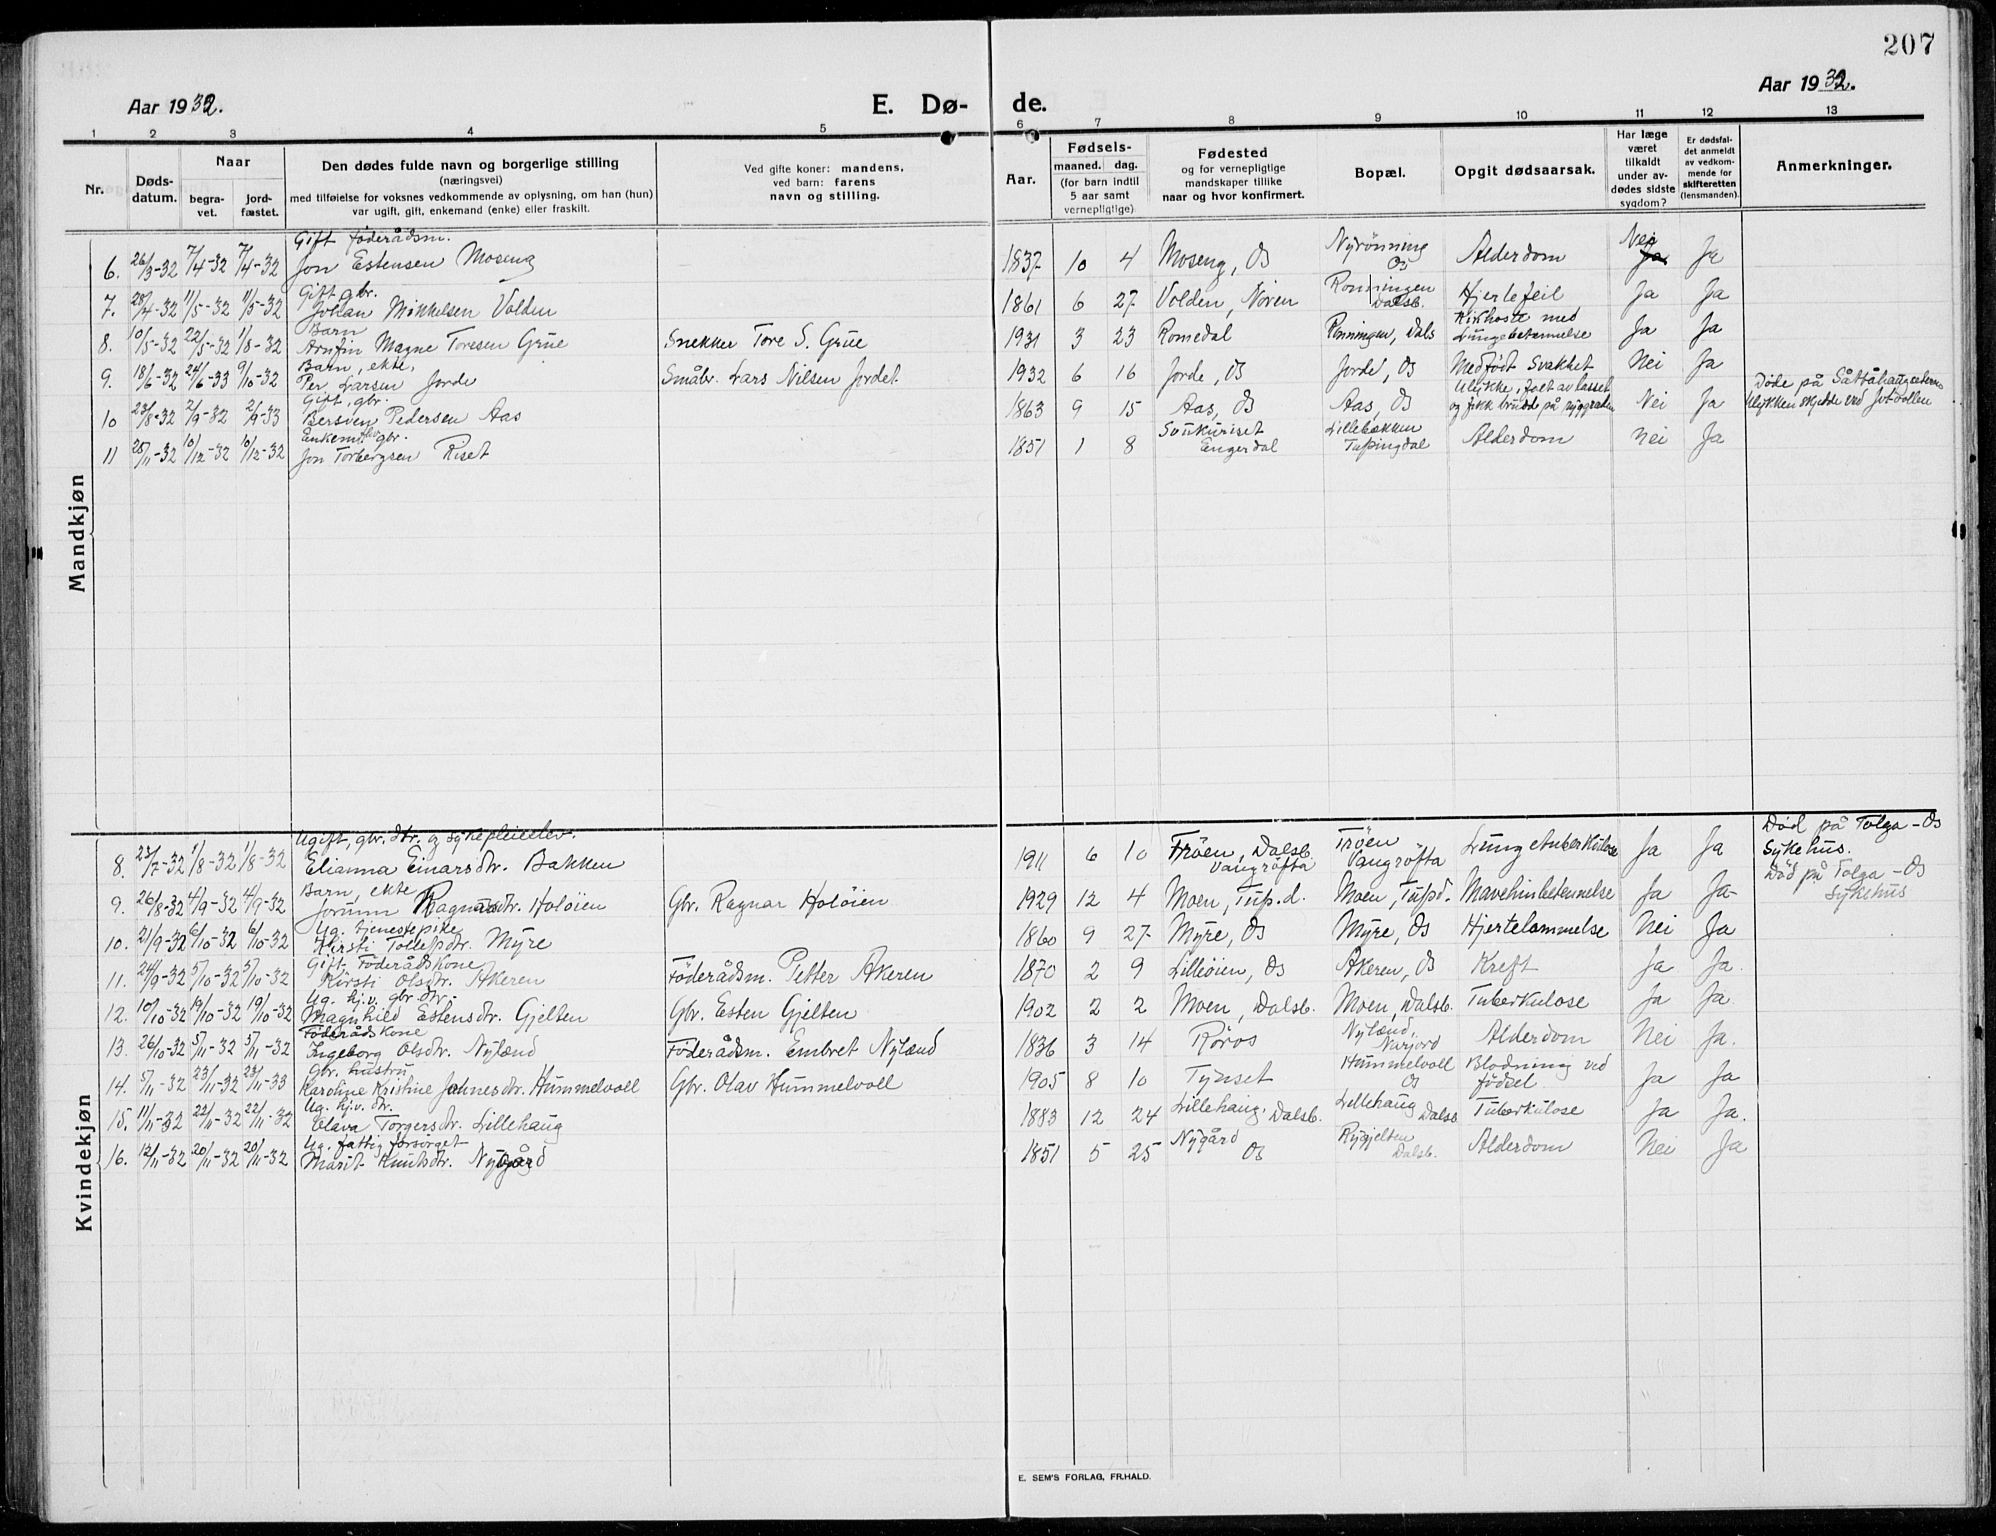 207
Aar 1932.
E. Dø-
de.
Aar 1932.
1 2 3 4 5 6 7 8 9 10 11 12 13
Nr.
Døds-datum.
Naar
begra-vet.
jord-fæstet.
Den dødes fulde navn og borgerlige stilling
(næringsvei)
med tilføielse for voksnes vedkommende av oplysning, om han (hun)
var ugift, gift, enkemand (enke) eller fraskilt.
Ved gifte koner: mandens,
ved barn: farens
navn og stilling.
Aar.
Fødsels-
maaned. dag.
(for barn indtil
5 aar samt
vernepligtige)
Fødested
og for vernepligtige
mandskaper tillike
naar og hvor konfirmert.
Bopæl.
Opgit dødsaarsak.
Har læge
været
tilkaldt
under av-
dødes sidste
sygdom?
Er dødsfal-
det anmeldt
av vedkom-
mende for
skifteretten
(lensmanden).
Anmerkninger.
Mandkjøn
Gift föderådsm.
6. 26/3-32 7/4-32 7/4-32 Jon Estensen Moseng 1837 10 4 Moseng, Os Nyrönning Os Alderdom Nei Ja Ja
Gift, gbr.
7. 28/4-32 11/5-32 11/5-32 Johan Mikkelsen Volden 1861 6 27 Volden, Nören Rönningen Dalsb. Hjertefeil Ja Ja
Barn
8. 10/5-32 22/5-32 1/8-32 Arnfin Magne Toresen Grue Snekker Tore S. Grue 1931 3 23 Romedal Rönningen, Dals Kikhoste med Lungebetennelse Ja Ja
Barn, ekte,
9. 18/6-32 24/6-33 9/10-32 Per Larsen Jorde Småbr. Lars Nilsen Jordet 1932 6 16 Jorde, Os Jorde, Os Medfödt Svakhet Nei Ja
Gift, gbr.
10 23/8-32 2/9-32 2/9-33 Bersven Pedersen Aas 1863 9 15 Aas, Os Aas, Os Ulykke, falt av lasset og fikk brudd på ryggraden Nei Ja Döde på Såttåhaugseteren Ulykken skjedde ved
Enkem. gbr.
11 25/11-32 10/12-32 10/12-32 Jon Torbergsen Riset 1851 1 8 Svukuriset Engerdal Lillebekken Tufsingdal Alderdom Nei Ja
Kvindekjøn
Ugift, gbr. dtr. og sykepleieelev.
8. 23/7-32 1/8-32 1/8-32 Elianna Einarsdtr. Bakken 1911 6 10 Fröen, Dalsb. Vangröfta Tröen Vangröfta Lungetuberkulose Ja Ja Död på Tolga-Os Sykehus.
Barn, ekte
9. 26/8-32 4/9-32 4/9-32 Jorunn Ragnarsdtr. Holöien Gbr. Ragnar Holöien 1929 12 4 Moen, Tufs.d. Moen, Tufsd. Mavehinbetennelse Ja Ja Död på Tolga-Os Sykehus
Ug. tjenestepike
10. 21/9-32 6/10-32 6/10-32 Kirsti Tollefsdtr. Myre 1860 9 27 Myre, Os Myre, Os Hjertelammelse Nei Ja
Gift Föderådskone
11. 24/9-32 5/10-32 5/10-32 Kirsti Olsdtr. Akeren Föderådsm. Petter Akeren 1870 2 9 Lillöien, Os Akeren, Os Kreft Ja Ja.
Ug. hj.v. gbr dtr.
12. 10/10-32 19/10-32 19/10-32 Magnhild Estensdtr. Gjelten Gbr. Esten Gjelten 1902 2 2 Moen, Dalsb. Moen, Dalsb. Tuberkulose Ja Ja.
Föderådskone
13. 26/10-32 5/11-32 5/11-32 Ingeborg Olsdtr. Nylænd Föderådsm. Embret Nylænd 1836 3 14 Röros Nylænd, Narjord Alderdom Nei Ja.
Gbr. hustru
14. 5/11-32 23/11-32 23/11-33 Karoline Kristine Johnesdtr. Hummelvoll Gbr. Olav Hummelvoll 1905 8 10 Tynset Hummelvoll Os Blödning ved födsel Ja Ja
Ug. hj.v. dtr.
15. 11/11-32 22/11-32 22/11-32 Elava Torgersdtr. Lillehaug 1883 12 24 Lillehaug, Dalsb. Lillehaug Dalsb Tuberkulose Ja Ja.
Ug. fattig forsörget
16. 12/11-32 20/11-32 20/11-32 Marit Knutsdtr. Nygård 1851 5 25 Nygård Os Rygjelten Dalsb. Alderdom Nei Ja
E. SEM'S FORLAG, FR.HALD.